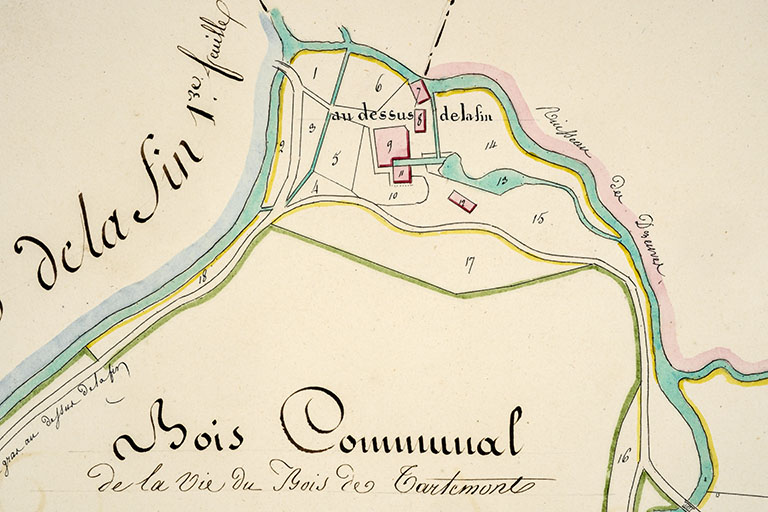 de la fin 1.re feuille
1
6
7
au dessus de la fin
8
3
2
9
14
5
11
13
4
10
12
15
17
18
Ruisseau
16
au dessus de la fin
Bois Communal
de la Vie du Bois de Tartemont